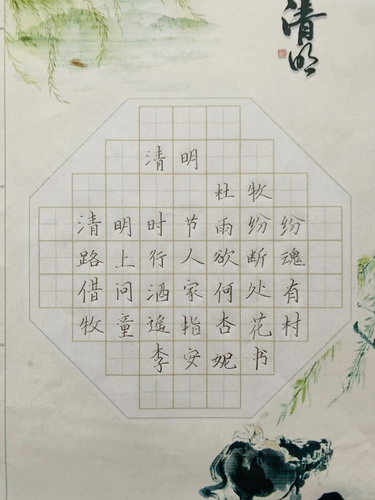 清明
清明
杜牧
清明时节雨纷纷
路上行人欲断魂
借问酒家何处有
牧童遥指杏花村
李安妮书